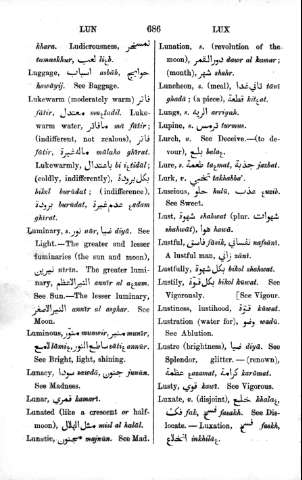 LUN 686 LUX
khara. Ludicrousness, تمسخر
tamaskhur, لعب laʿb.
Luggage, اسباب asbāb, حوايج
hawāyij. See Baggage.
Lukewarm (moderately warm) فاتر
fātir, معتدل muʿtadil. Luke-
warm water, ماء فاتر mā fātir;
(indifferent, not zealous), فاتر
fātir, مالهش غيرة mālahsh ghirat.
Lukewarmly, باعتدال bi iʿtidāl;
(coldly, indifferently), بكل برودة
bikol burūdat; (indifference),
برودة burūdat, عدم غيرة ʿadam
ghirat.
Luminary, s. نور nūr, ضيا diyā. See
Light.—The greater and lesser
luminaries (the sun and moon),
نيرين The greater lumi-
nary, النير الاعظم annīr al aʿzam.
See Sun.—The lesser luminary,
النير الاصغر annīr al asghar. See
Moon.
Luminous, منور munawir, منير munīr,
لامع lāmiʿ, ساطع النور sātiʿ annūr.
See Bright, light, shining.
Lunacy, سودا sawdā, جنون junūn.
See Madness.
Lunar, قمري kamarī.
Lunated (like a crescent or half-
moon), مثل الهلال misl al halāl.
Lunatic, مجنون majnūn. See Mad.
Lunation, s. (revolution of the
moon), دور القمر dawr al kamar;
(month), شهر shahr.
Luncheon, s. (meal), غدا تاني tānī
ghadā; (a piece), قطعة kitʿat.
Lungs, s. الرية arriyah.
Lupine, s. ترمس turmus.
Lurch, v. See Deceive.—(to de-
vour), بلع balaʿ.
Lure, s. طعمة taʿmat, جذبة jazbat.
Lurk, v. تخبى takhabbaʾ.
Luscious, حلو hulū, عذب ʿazib.
See Sweet.
Lust, شهوة shahwat (plur. شهوات
shahwāt), هوا hawā.
Lustful, فاسق fāsik, نفساني nafsānī.
A lustful man, زاني zānī.
Lustfully, بكل شهوة bikol shahwat.
Lustily, بكل قوة bikol kūwat. See
Vigorously. [See Vigour.
Lustiness, lustihood, قوة kūwat.
Lustration (water for), وضو wadū.
See Ablution.
Lustre (brightness), ضيا diyā. See
Splendor, glitter. — (renown),
عظمة ʿazamat, كرامة karāmat.
Lusty, قوي kawī. See Vigorous.
Luxate, v. (disjoint), خلع khalaʿ,
فك fak, فسخ fasakh. See Dis-
locate. — Luxation, فسخ fasakh,
انخلاع inkhilāʿ.